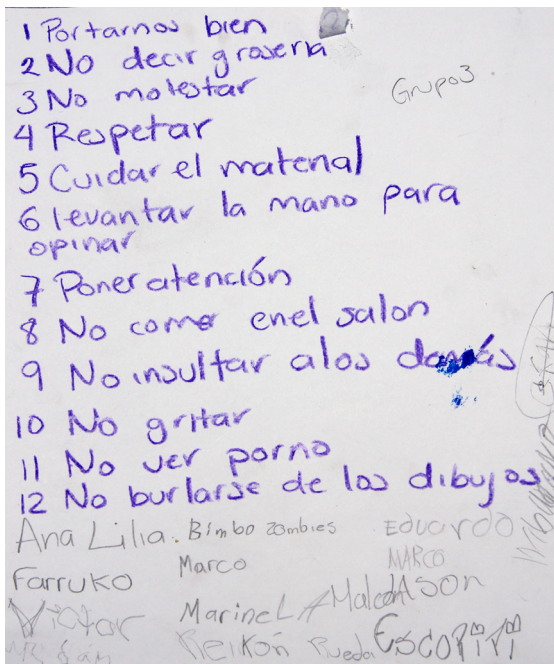 1 Portarnos bien
2 No decir groseria
3 No molestar
Grupo3.
4 Respetar
5 Cuidar el material
6 levantar la mano para
opinar
7 Poner atención
8 No comer enel salon
9 No insultar alos demás
10 No gritar
11 No ver porno
12 No burlarse de los dibujos
Ana Lilia. Bimbo zombies Eduardo
Farruko Marco MARCO
Victor MarineLA Malcom JASon
Reikon Rueda EscoPiTi